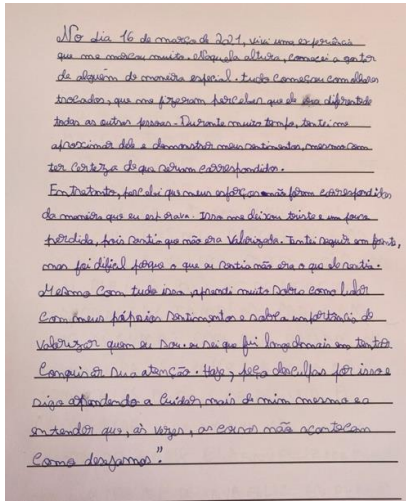 No dia 16 de março de 2021, vivi uma experiência
que me marcou muito. Naquela altura, comecei a gostar
de alguém de maneira especial. tudo começou com olhares
trocados, que me fizeram perceber que ele era diferente de
todas as outras pessoas. Durante muito tempo, tentei me
aproximar dele e demonstrar meus sentimentos, mesmo sem
ter certeza de que seriam correspondidos.
Entretanto, percebi que meus esforços não foram correspondidos
da maneira que eu esperava. Isso me deixou triste e um pouco
perdida, pois sentia que não era valorizada. Tentei seguir em frente,
mas foi difícil porque o que eu sentia não era o que ele sentia.
Mesmo com tudo isso, aprendi muito sobre como lidar
com meus próprios sentimentos e sobre a importância de
valorizar quem eu sou. eu sei que fui longe demais em tentar
conquistar sua atenção. Hoje, peço desculpas por isso e
sigo aprendendo a cuidar mais de mim mesma e a
entender que, às vezes, as coisas não acontecem
como desejamos."